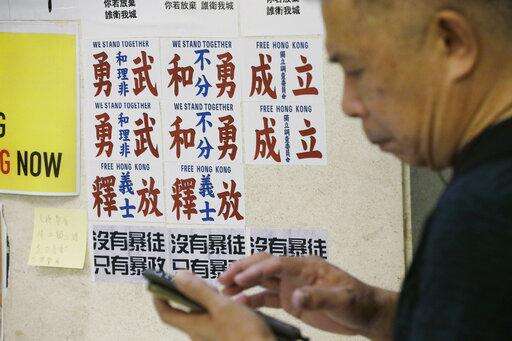 你若放棄
誰衛我城
你若放棄
誰衛我城
WE STAND TOGETHER
勇和理非武
WE STAND TOGETHER
和不分勇
FREE HONG KONG
成獨立調查委員會立
WE STAND TOGETHER
勇和理非武
WE STAND TOGETHER
和不分勇
FREE HONG KONG
成獨立調查委員會立
FREE HONG KONG
釋義士放
FREE HONG KONG
釋義士放
沒有暴徒
只有暴政
沒有暴徒
只有暴
沒有暴徒
G
G NOW